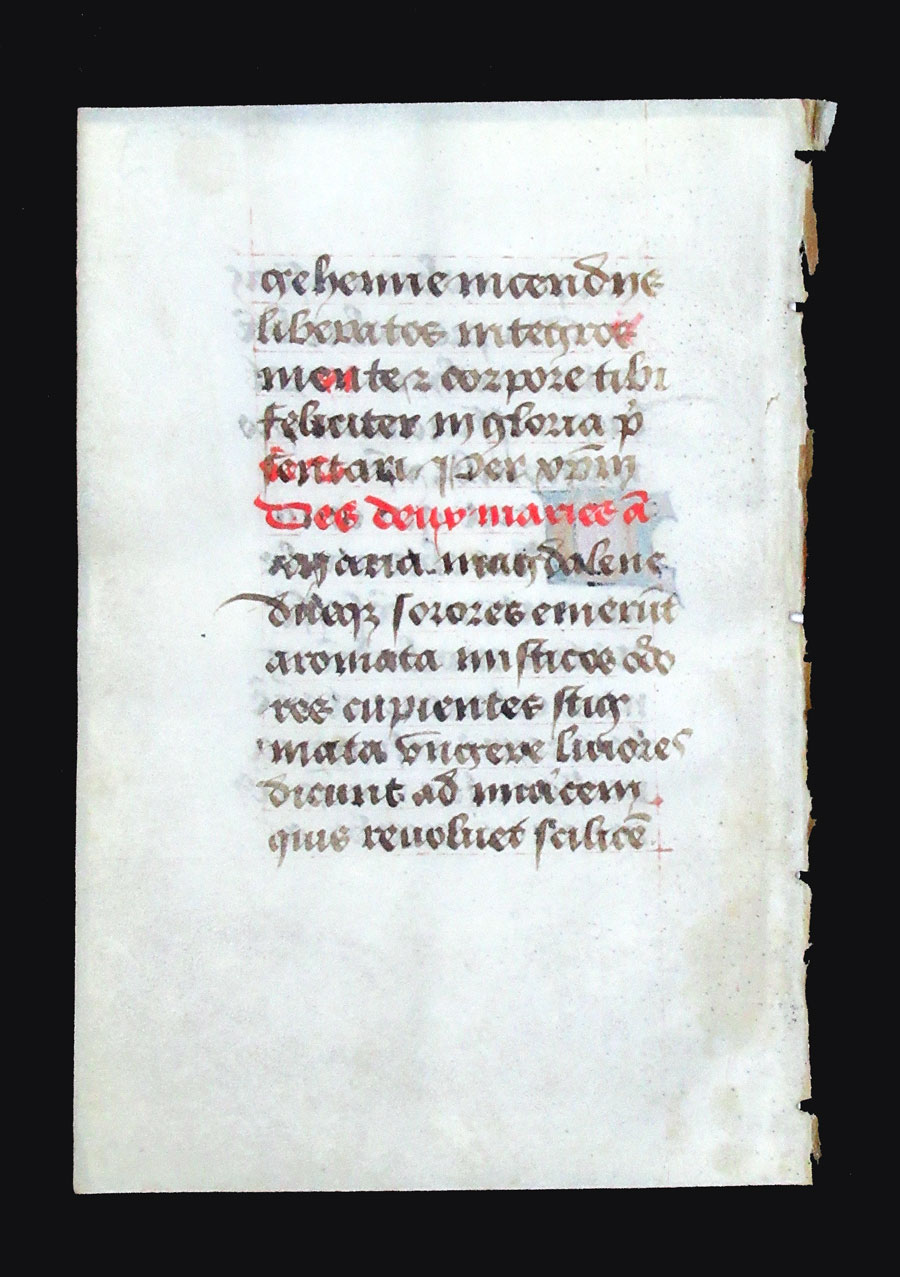 gehenne incendiis
liberatos integros
mente ⁊ corpore tibi
feliciter in gloria p̄
sentari Per xp̄m
Des deux maries ā
Maria magdalene
dueqꝫ sorores emerūt
aromata misticos odo
res cupientes stig
mata vngere liuiores
dicunt ad inuicem
quis reuoluet scilicē